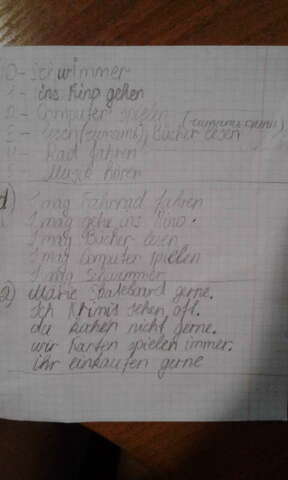 D - Schwimmer
ins Kino gehen
Computer spielen
Lesen Bücher lesen
Rad fahren
Musik hören
d) I mag Fahrrad fahren
I mag gehe ins Kino.
I mag Bücher lesen
I mag Computer spielen
I mag Schwimmer
a) Marie gerne.
Ich Krimis sehen oft.
du kochen nicht gerne.
wir karten spielen immer.
ihr einkaufen gerne